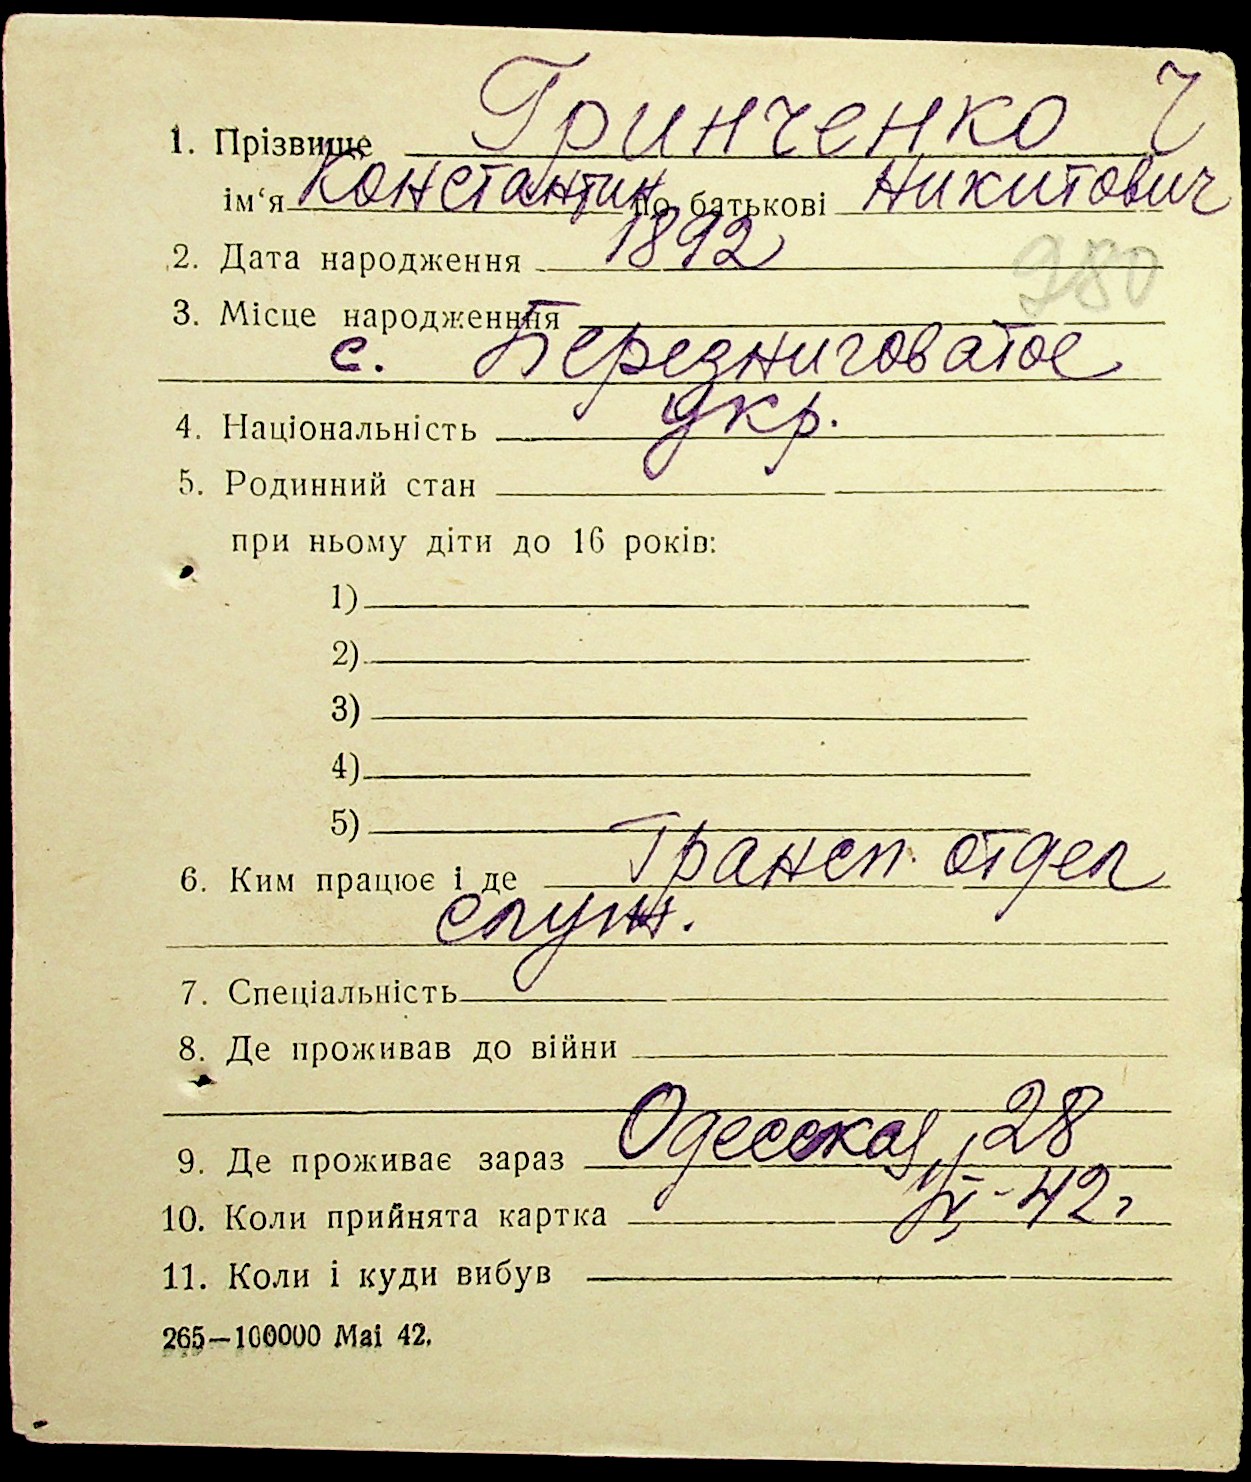 1. Прізвище Гринченко Ч
ім‘я Константин по батькові Никитович
2. Дата народження 1892
980
3. Місце народженння
с. Березниговатое
4. Національність укр.
5. Родинний стан
при ньому діти до 16 років:
1)
2)
3)
4)
5)
6. Ким працює і де Трансп. отдел
служ.
7. Спеціальність
8. Де проживав до війни
9. Де проживає зараз Одесская, 28
10. Коли прийнята картка -42г
11. Коли і куди вибув
265—100000 Mai 42.